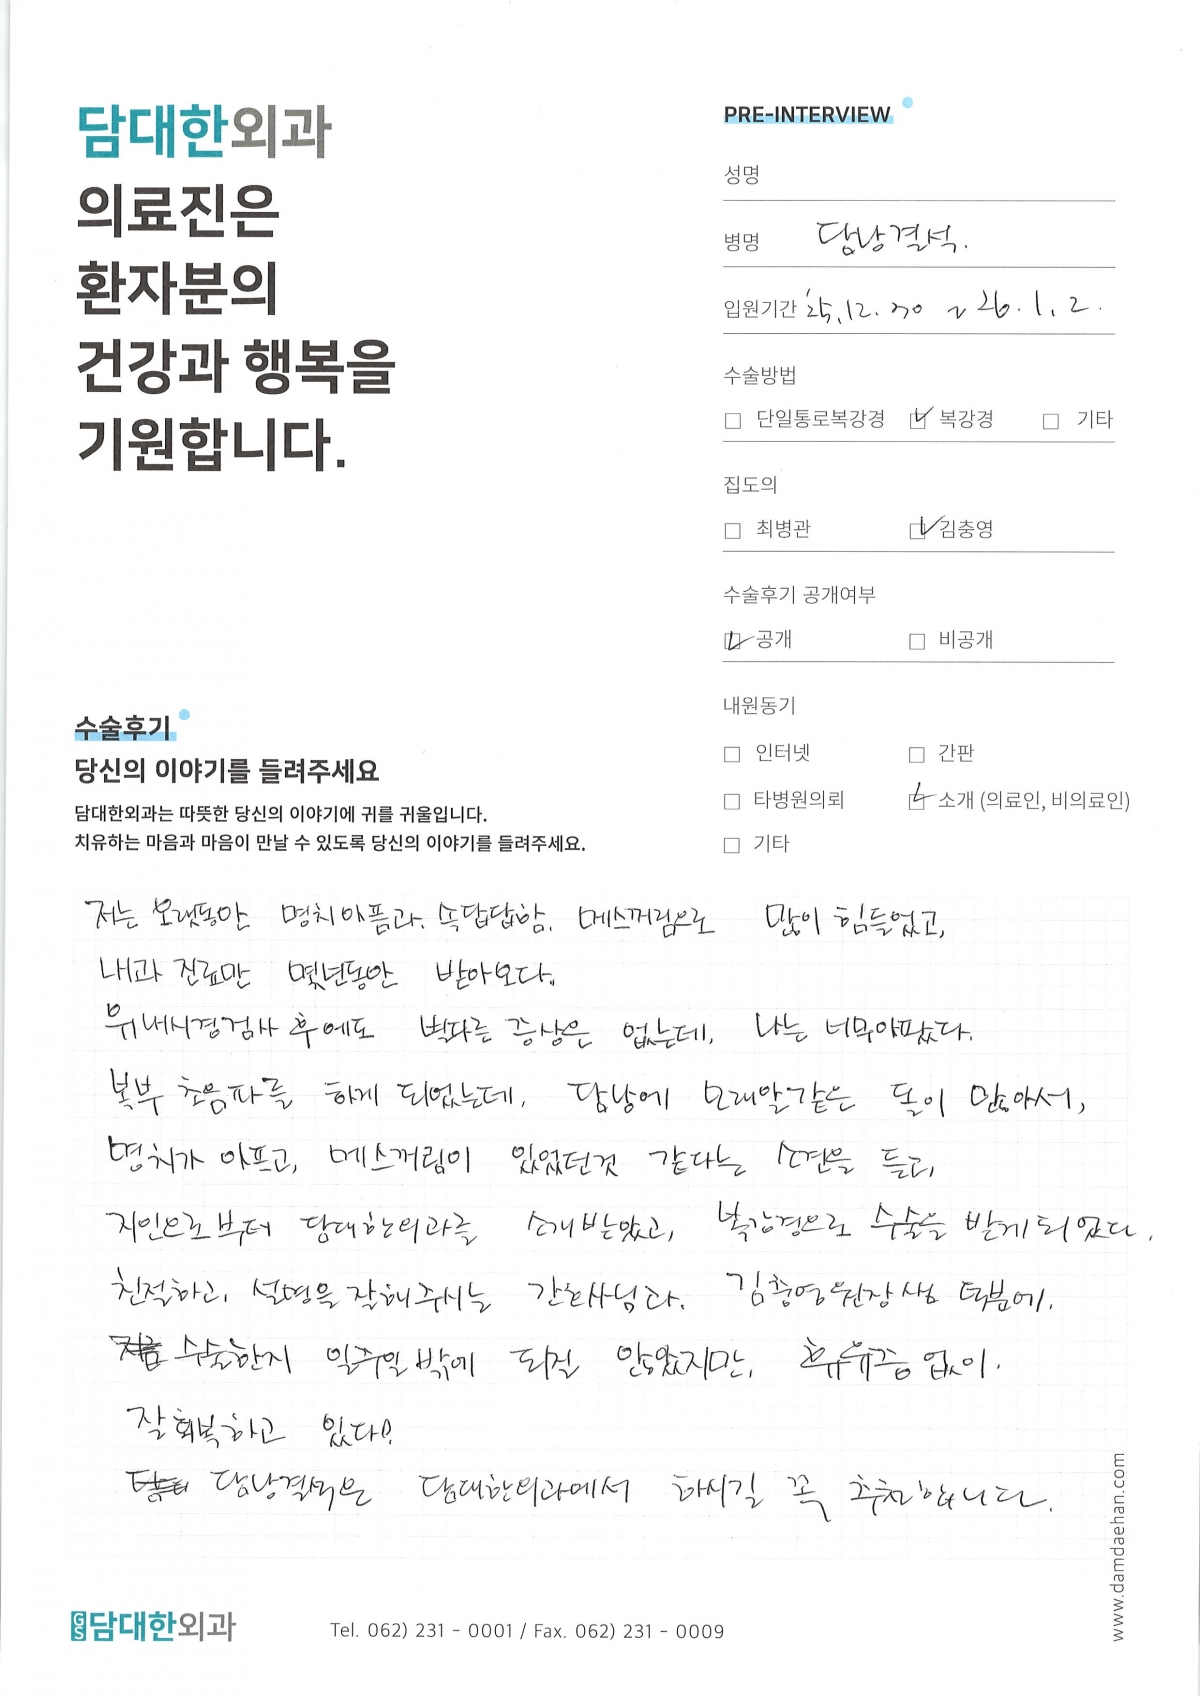 담대한외과
의료진은
환자분의
건강과 행복을
기원합니다.
PRE-INTERVIEW
성명
병명 담낭결석.
입원기간 '25.12.30 ~ 26.1.2.
수술방법
단일통로복강경 복강경 기타
집도의
최병관 김충영
수술후기 공개여부
공개 비공개
내원동기
인터넷 간판
타병원의뢰 소개 (의료인, 비의료인)
기타
수술후기
당신의 이야기를 들려주세요
담대한외과는 따뜻한 당신의 이야기에 귀를 귀울입니다.
치유하는 마음과 마음이 만날 수 있도록 당신의 이야기를 들려주세요.
저는 오랫동안 명치아픔과. 속답답함. 메스꺼림으로 많이 힘들었고,
내과 진료만 몇년동안 받아오다.
위내시경검사 후에도 벽다른 증상은 없는데, 나는 너무아팠다.
복부 초음파를 하게 되었는데, 담낭에 모래알같은 돌이 많아서,
명치가 아프고, 메스꺼림이 있었던것 같다는 소견을 듣고,
지인으로부터 담대한외과를 소개받았고, 복강경으로 수술을 받게되었다.
친절하고, 설명을 잘해주시는 간호사님과. 김충영원장님 덕분에.
수술한지 일주일밖에 되질 않았지만, 후유증없이.
잘 회복하고 있다!
담낭결석은 담대한외과에서 하시길 꼭 추천합니다.
GS 담대한외과
Tel. 062) 231 - 0001 / Fax. 062) 231 - 0009
www.damdaehan.com